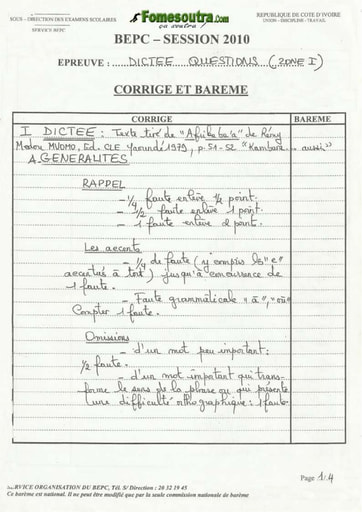 SOUS – DIRECTION DES EXAMENS SCOLAIRES
SERVICE BEPC
Fomesoutra.com
ça soutra !
REPUBLIQUE DE COTE D'IVOIRE
UNION – DISCIPLINE – TRAVAIL
BEPC – SESSION 2010
EPREUVE : DICTEE QUESTIONS (ZONE I)
CORRIGE ET BAREME
CORRIGE
BAREME
I DICTEE : Texte tiré de "Afrika ba'a" de Rémy
Medou MVOMO, Ed. CLE Yaoundé 1979, p. 51-52 "Kambara... aussi"
A. GENERALITES
RAPPEL
- 1/4 faute enlève 1/2 point.
- 1/2 faute enlève 1 point.
- 1 faute enlève 2 point.
Les accents
- 1/4 de faute (y compris les "e"
accentués à tort) jusqu'à concurrence de
1 faute.
- Faute grammaticale "à", "où"
Compter 1 faute.
Omissions
- d'un mot peu important :
1/2 faute.
- d'un mot important qui trans-
forme le sens de la phrase ou qui présente
une difficulté orthographique : 1 faute
Page 1/4
SERVICE ORGANISATION DU BEPC, Tél. S/ Direction : 20 32 19 45
Ce barème est national. Il ne peut être modifié que par la seule commission nationale de barème